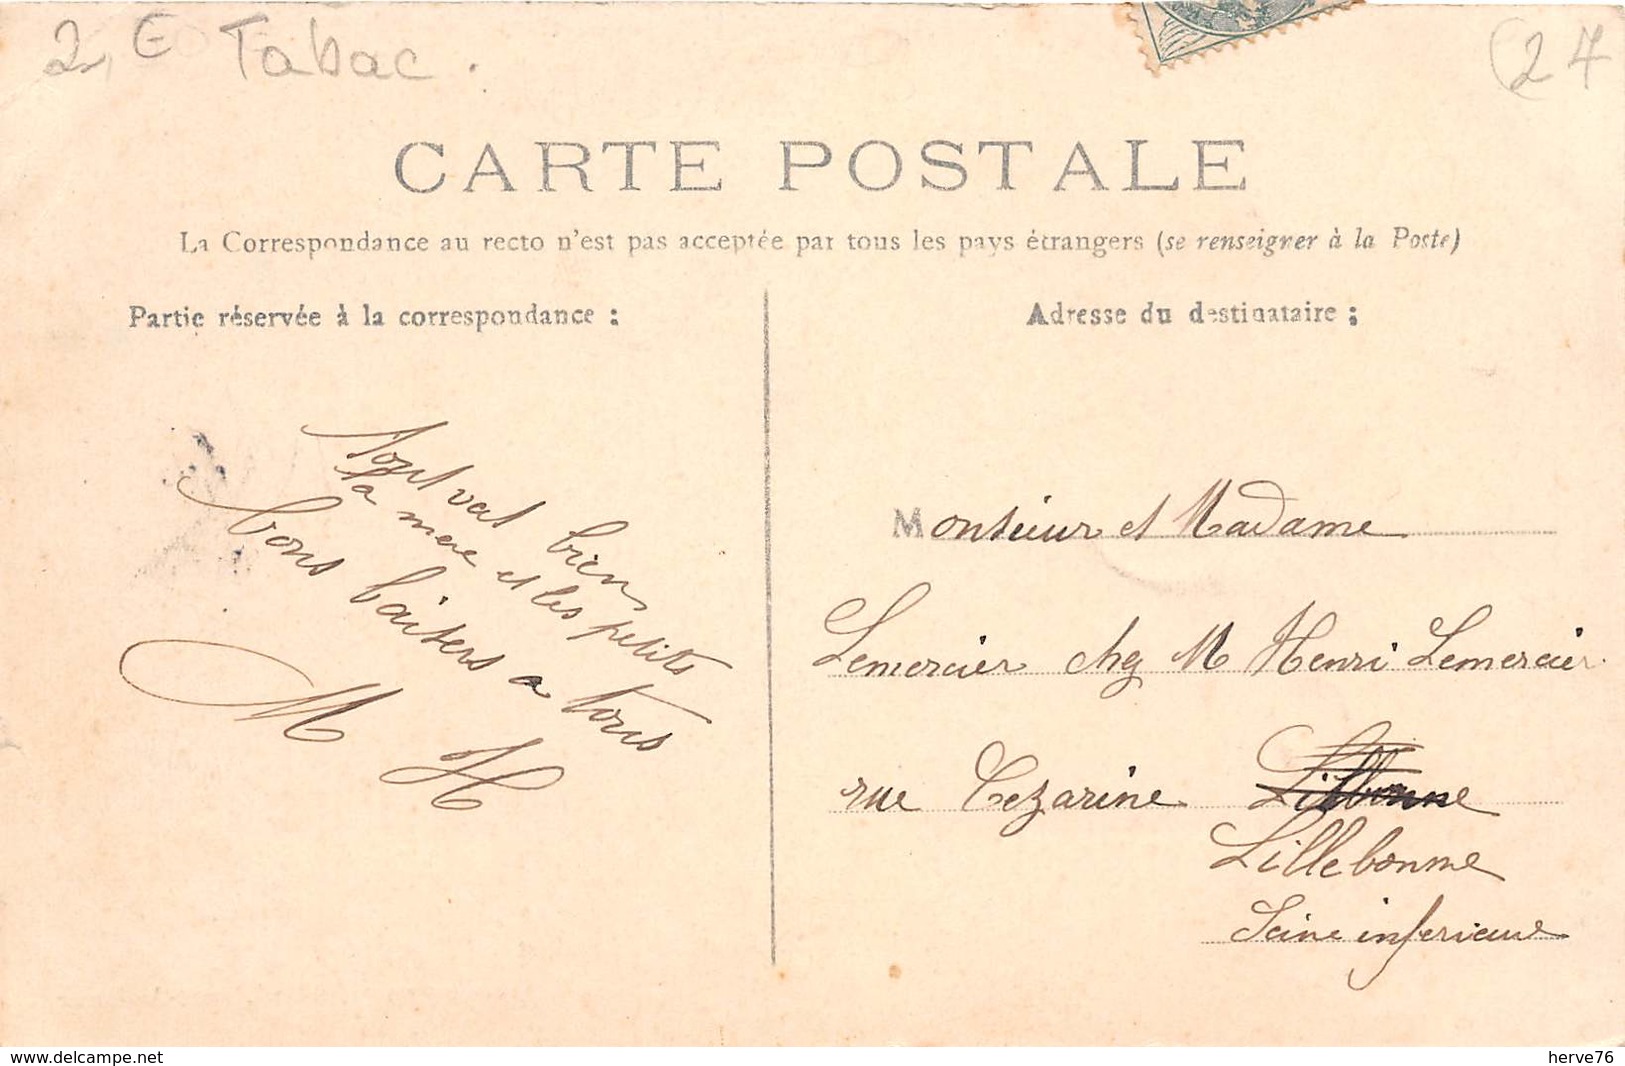 2,€ Tabac.
(27
CARTE POSTALE
La Correspondance au recto n'est pas acceptée par tous les pays étrangers (se renseigner à la Poste)
Partie réservée à la correspondance :
Tout vat bien
la mere et les petits
bons baisers a tous
M H
Adresse du destinataire :
Monsieur et Madame
Lemercier chez M Henri Lemercier
rue Cezarine Lillbonne
Lillebonne
Seine inferieure
www.delcampe.net
herve76